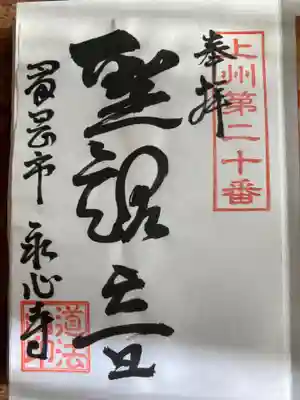 上州第二十番
奉拝
聖観音
富岡市 永心寺
道法